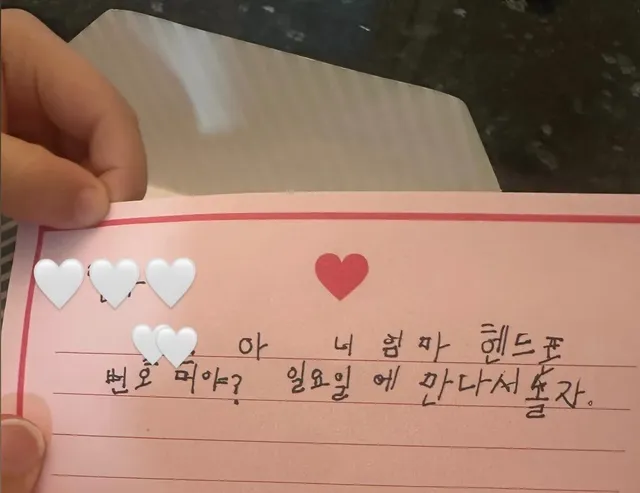 아 네 엄마 헨드폰
번호 머야? 일요일 에 만다서 놀자.